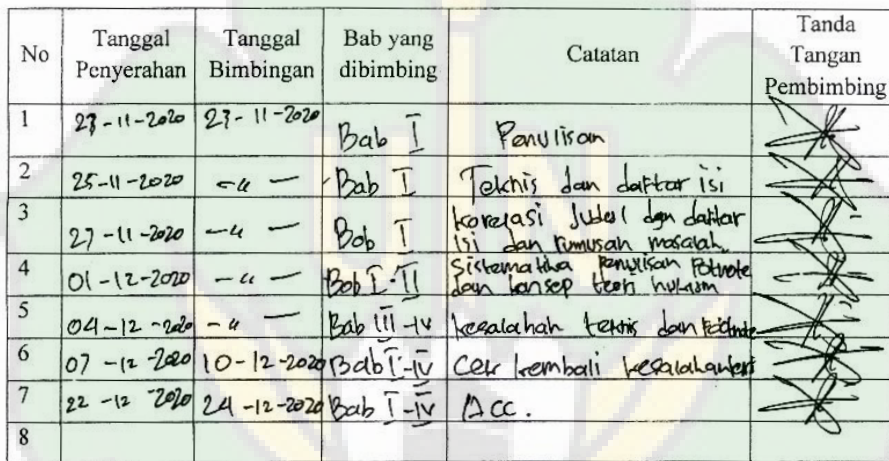 No Tanggal Penyerahan Tanggal Bimbingan Bab yang dibimbing Catatan Tanda Tangan Pembimbing
1 23-11-2020 23-11-2020 Bab I Penulisan
2 25-11-2020 -〃- Bab I Tekhis dan daftar isi
3 27-11-2020 -〃- Bab I korelasi Judul dgn daftar
isi dan rumusan masalah
4 01-12-2020 -〃- Bab I-II Sistematika penulisan Fotnote
dan konsep teori hukum
5 04-12-2020 -〃- Bab III-IV kesalahan tekhis dan Footnote
6 07-12-2020 10-12-2020 Bab I-IV Cek kembali kesalahan
7 22-12-2020 24-12-2020 Bab I-IV ACC.
8